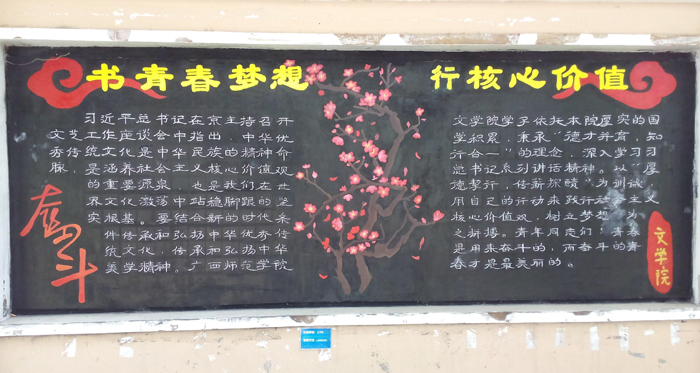 书青春梦想
行核心价值
习近平总书记在京主持召开
文艺工作座谈会中指出，中华优
秀传统文化是中华民族的精神命
脉，是涵养社会主义核心价值观
的重要源泉，也是我们在世
界文化激荡中站稳脚跟的坚
实根基。要结合新的时代条
件传承和弘扬中华优秀传
统文化，传承和弘扬中华
美学精神。广西师范学院
奋斗
文学院学子依托本院厚实的国
学积累，秉承“德才并育，知
行合一”的理念，深入学习习
总书记系列讲话精神。以“厚
德笃行，传薪探赜”为训诫，
用自己的行动来践行社会主义
核心价值观，树立梦想，为
之拼搏。青年同志们：青春
是用来奋斗的，而奋斗的青
春才是最美丽的。
文学院